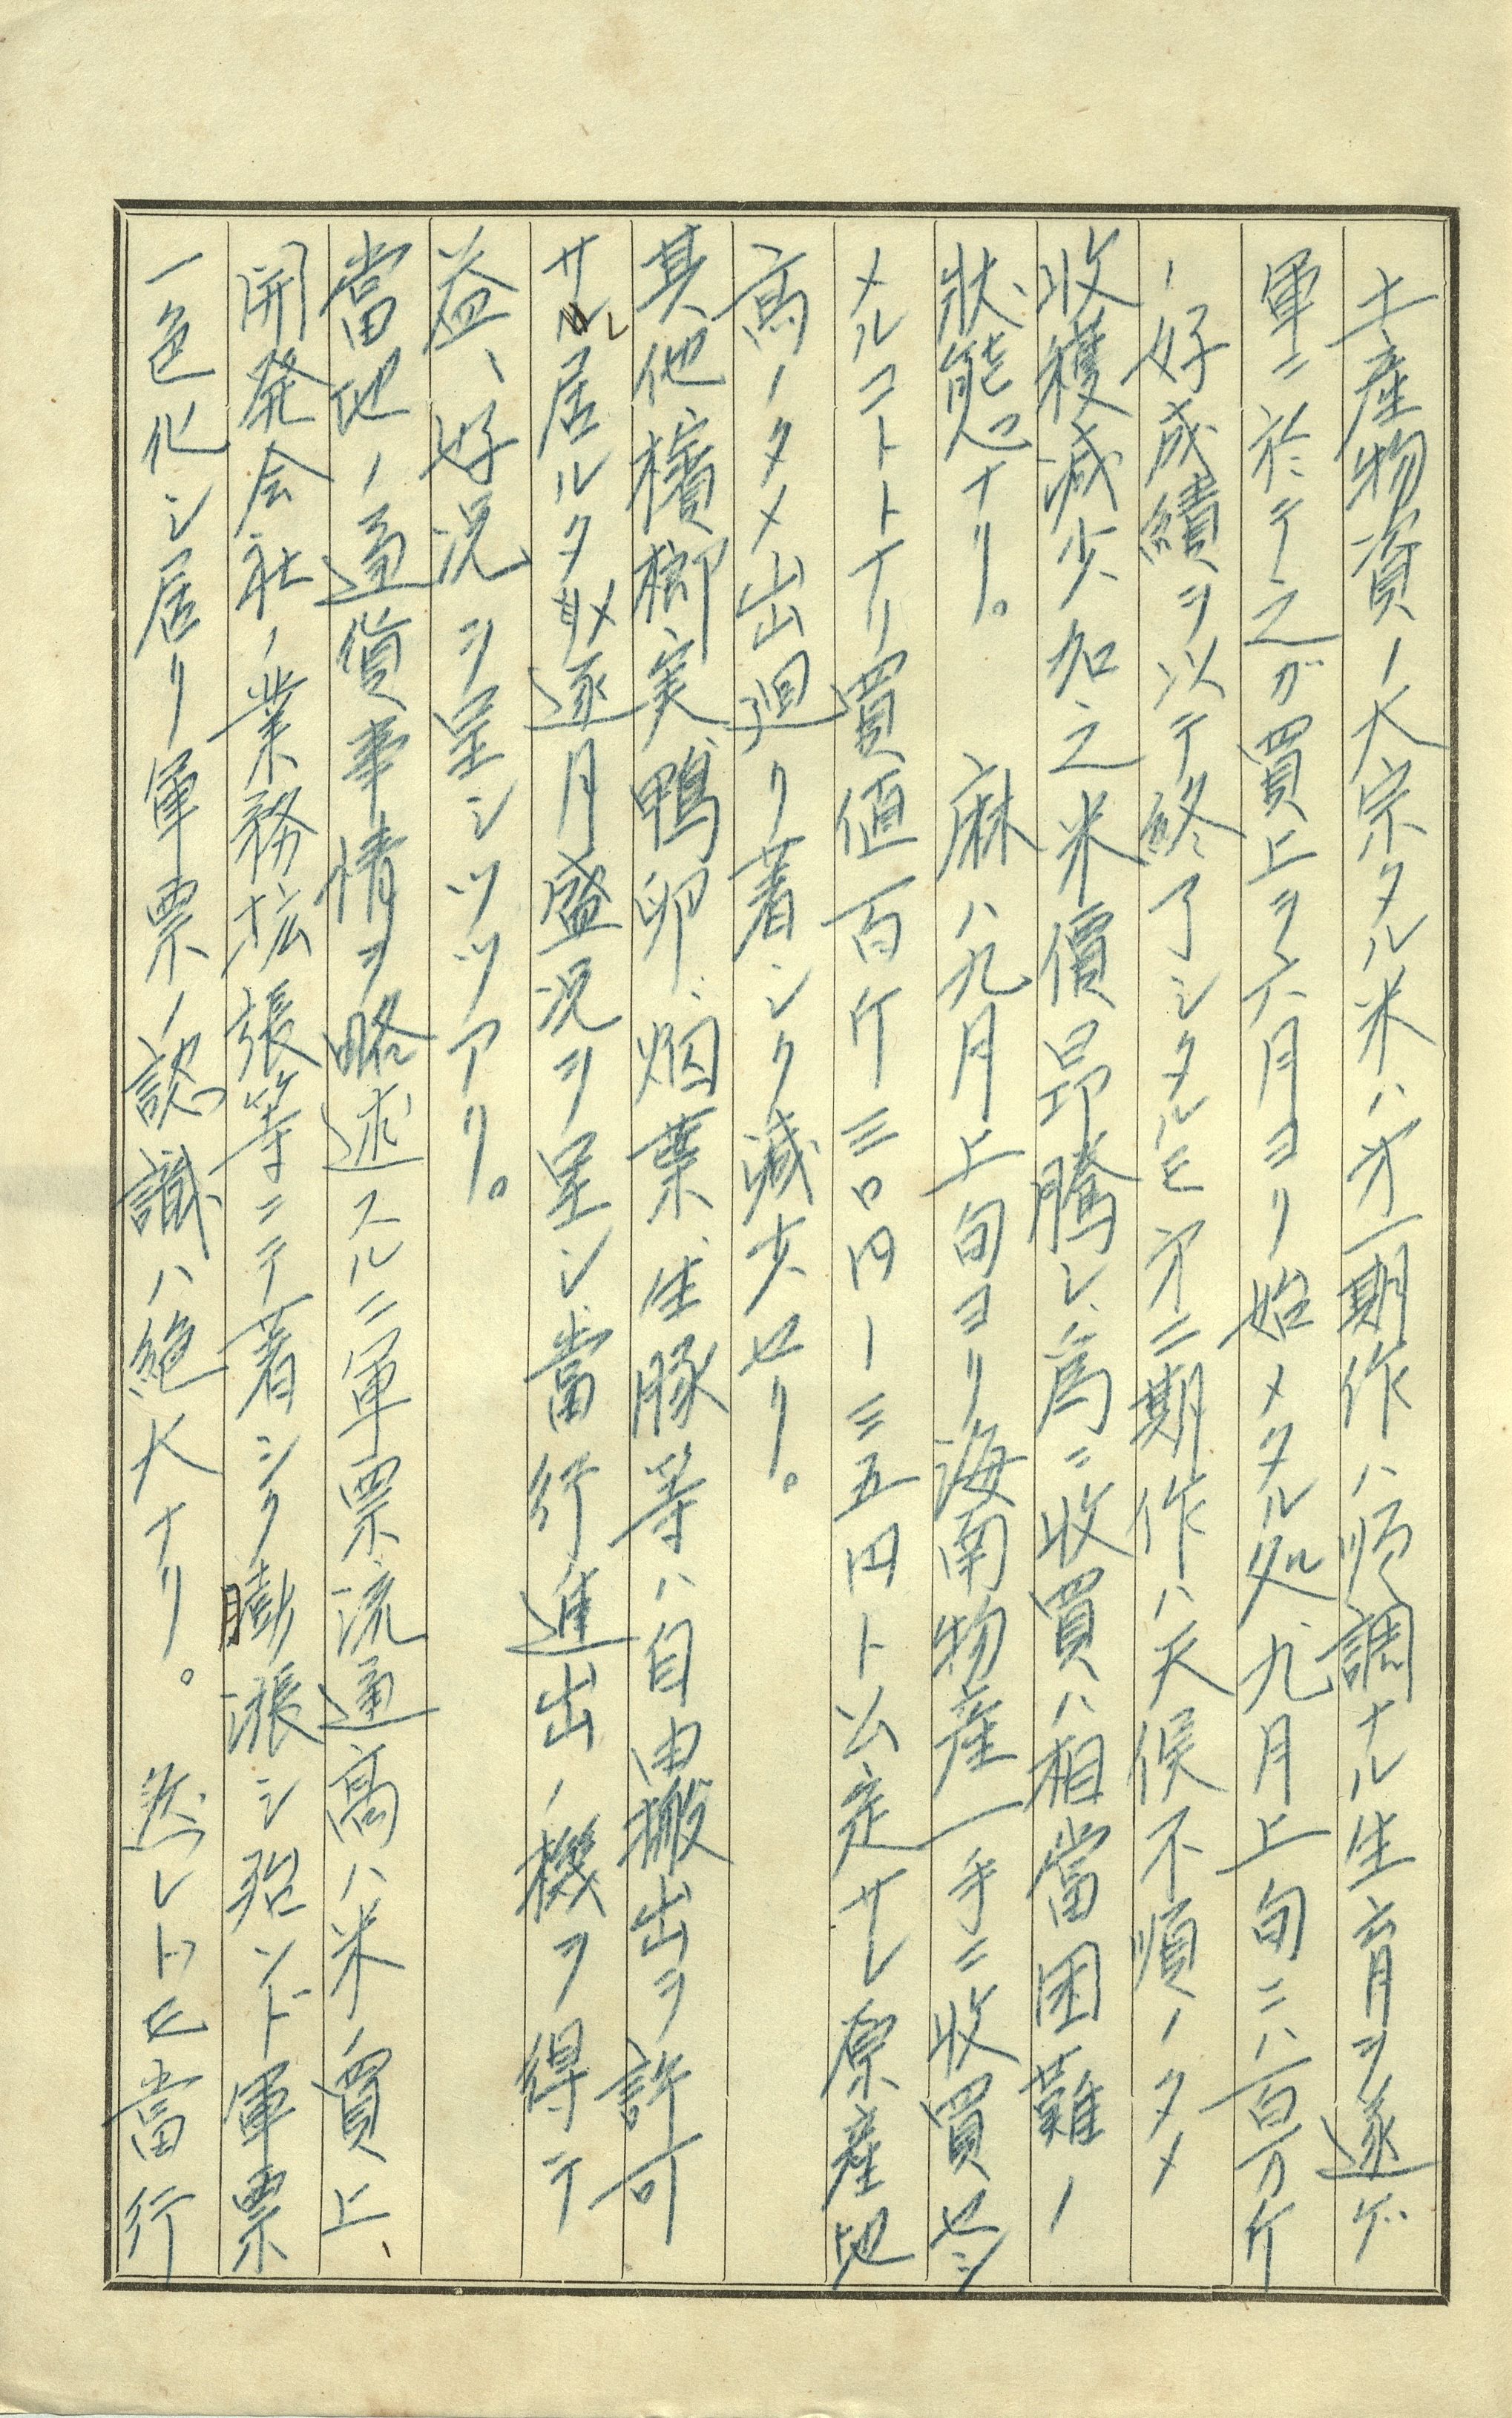 土産物資ノ大宗タル米ハ才一期作ハ順調ナル生育ヲ遂ゲ
軍ニ於テ之ガ買上ヲ六月ヨリ始メタル処、九月上旬ニハ百万斤
ノ好成績ヲ以テ終了シタルモ才二期作ハ天候不順ノタメ
收穫減少、加之米價昂騰シ、為ニ收買ハ相當困難ノ
狀態ナリ。 麻ハ九月上旬ヨリ海南物産一手ニ收買セシ
メルコトトナリ買値百斤三〇円ー三五円ト公定サレ原産地
高ノタメ出廻リ著シク減少セリ。
其他檳榔実、鴨卵、烟葉、生豚等ハ自由搬出ヲ許可
サレ居ルタメ逐月盛況ヲ呈シ、當行進出ノ機ヲ得テ
益、好況ヲ呈シツツアリ。
當地ノ通貨事情ヲ略述スルニ軍票流通高ハ米ノ買上、
開発会社ノ業務拡張等ニテ著シク膨漲シ殆ンド軍票
一色化シ居リ軍票ノ認識ハ絶大ナリ。 然レトモ當行